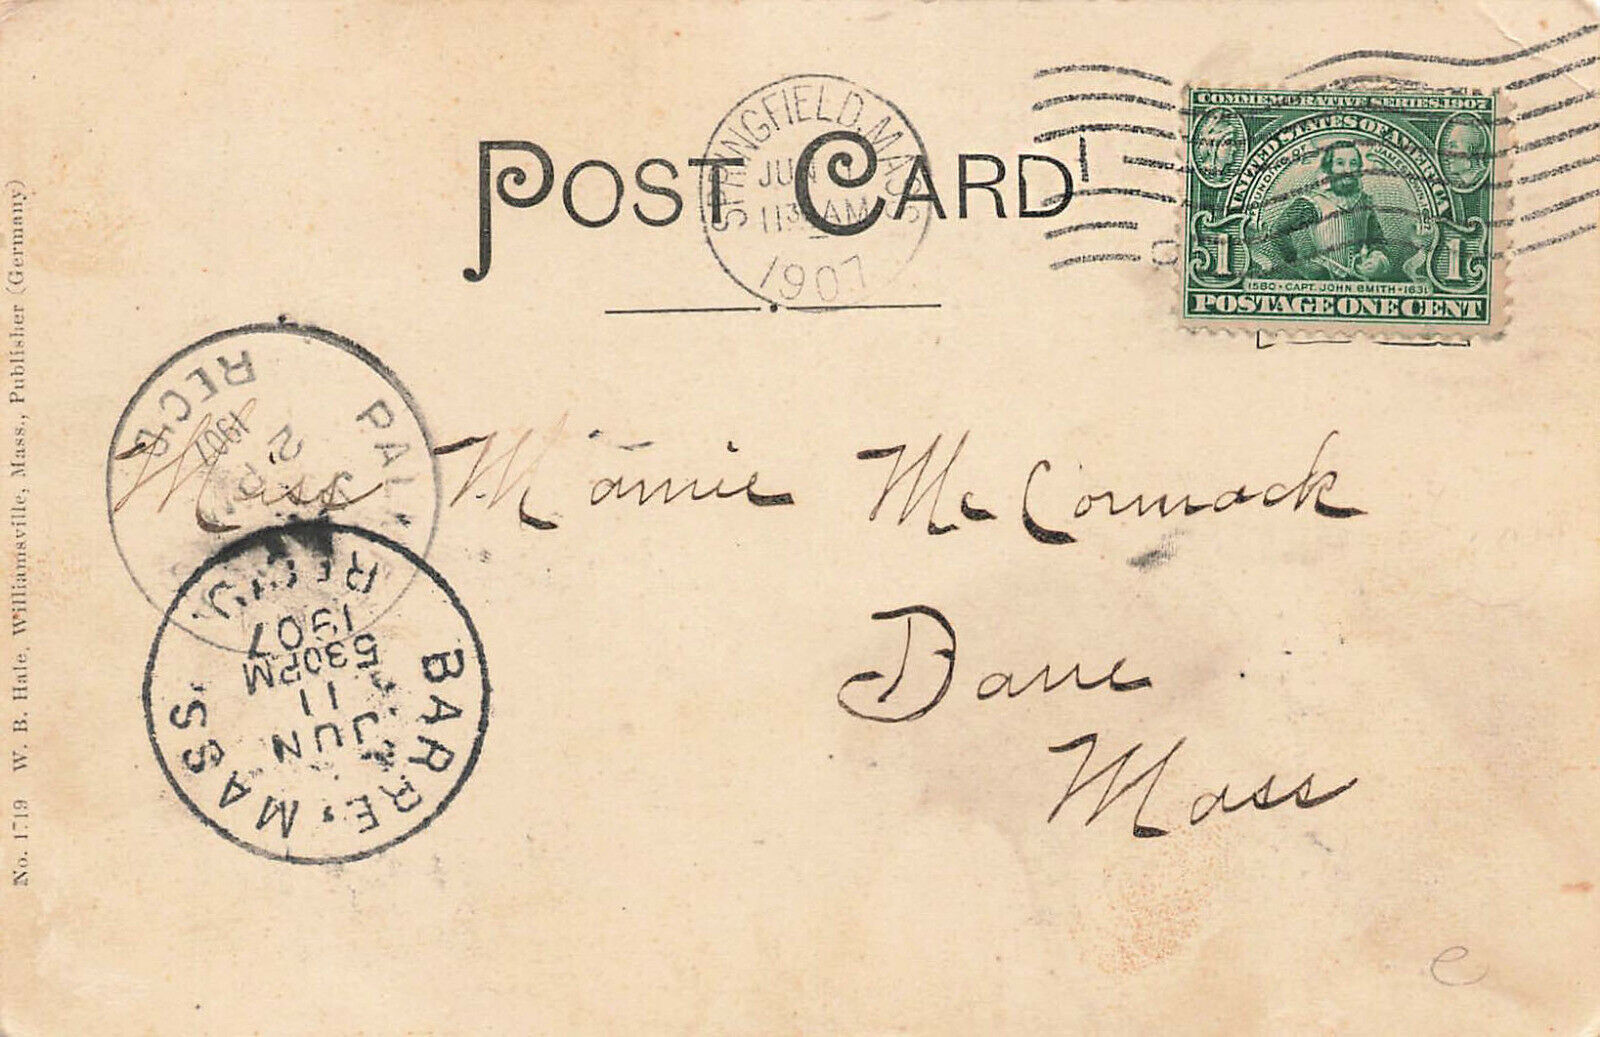 POST CARD
SPRINGFIELD, MASS.
JUN
11 30 AM
1907
COMMEMORATIVE SERIES 1907
UNITED STATES OF AMERICA
FOUNDING OF JAMESTOWN 1607
1 1
1580 · CAPT. JOHN SMITH · 1631
POSTAGE ONE CENT
REC'D.
1907
2
Miss Mamie McCormack
Barre
Mass
BARRE. MASS.
JUN
11
5 30PM
1907
REC'D.
No. 1719 W. B. Hale, Williamsville, Mass., Publisher (Germany)
e